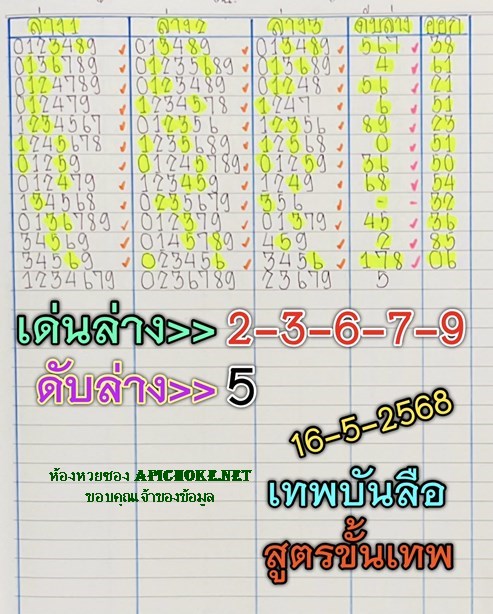 ล่าง1 ล่าง2 ล่าง3 ดับล่าง ออก
0123489 ✓ 013489 ✓ 013489 ✓ 567 ✓ 38
0136789 ✓ 01235689 ✓ 013689 ✓ 4 ✓ 61
0124789 ✓ 0123489 ✓ 01248 ✓ 56 ✓ 21
012479 ✓ 1234578 ✓ 1247 ✓ 6 ✓ 51
1234567 ✓ 012356 ✓ 12356 ✓ 89 ✓ 23
1245678 ✓ 1235689 ✓ 12568 ✓ 0 ✓ 51
01259 ✓ 01245789 ✓ 01259 ✓ 36 ✓ 50
012479 ✓ 123459 ✓ 1249 ✓ 68 ✓ 54
134568 ✓ 0235679 ✓ 356 ✓ - - 32
0136789 ✓ 012379 ✓ 01379 ✓ 45 ✓ 36
34569 ✓ 0145789 ✓ 459 ✓ 2 ✓ 85
34569 ✓ 023456 ✓ 3456 ✓ 178 ✓ 06
1234679 0236789 23679 5
เด่นล่าง>> 2-3-6-7-9
ดับล่าง>> 5
16-5-2568
ห้องหวยซอง APICHOKE.NET
ขอบคุณเจ้าของข้อมูล
เทพบันลือ
สูตรขั้นเทพ